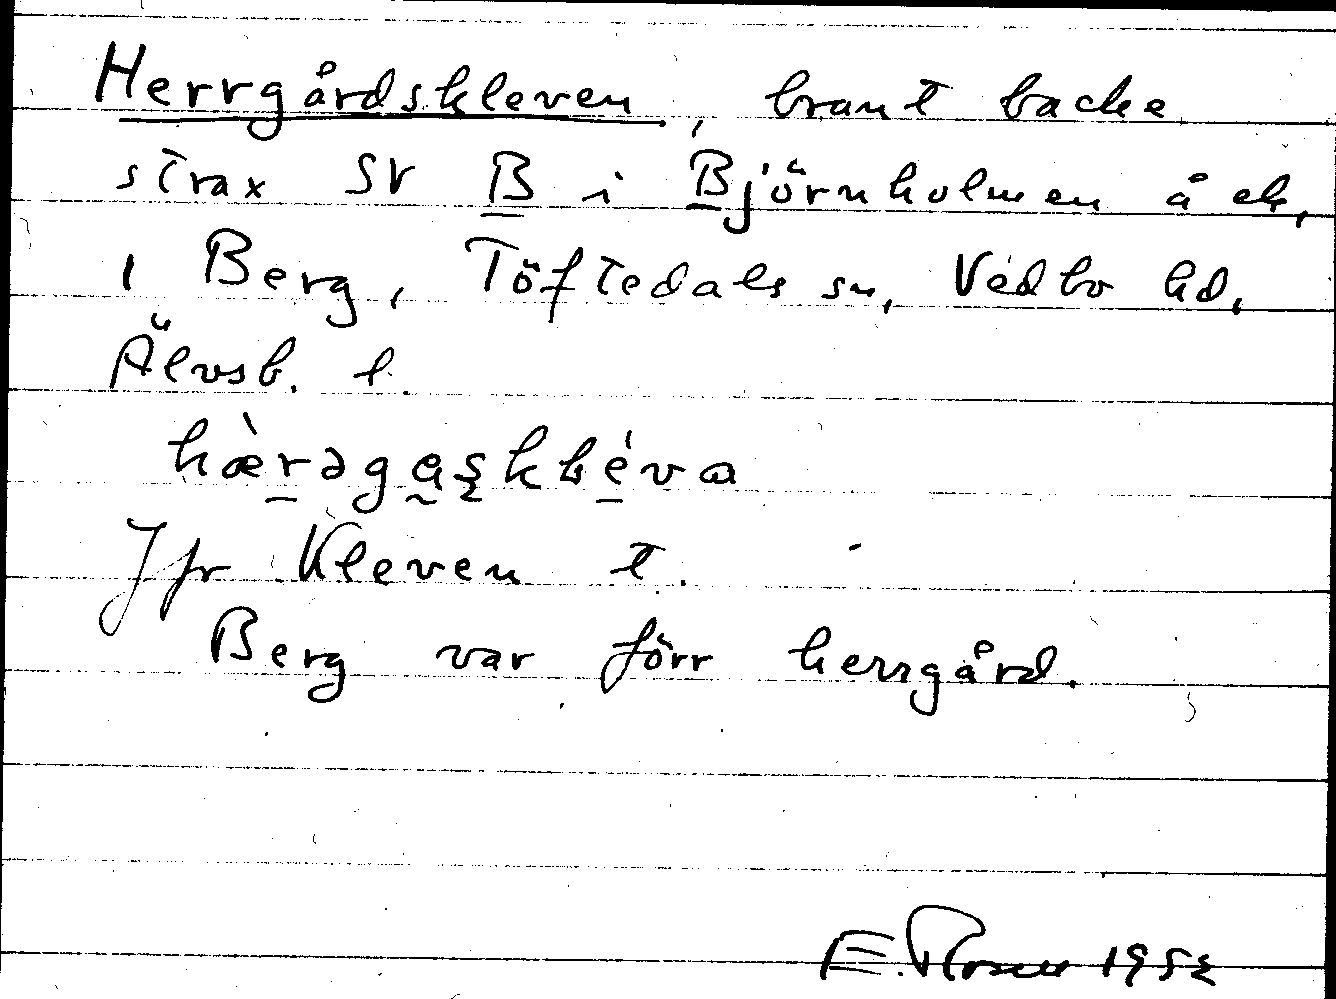 Herrgårdskleven, brant backe
strax SV B i Björnholmen å ek,
i Berg, Töftedals sn, Vedbo hd,
Älvsb. l.
hærəgaskléva
Jfr Kleven t.
Berg var förr herrgård.
E. 1952